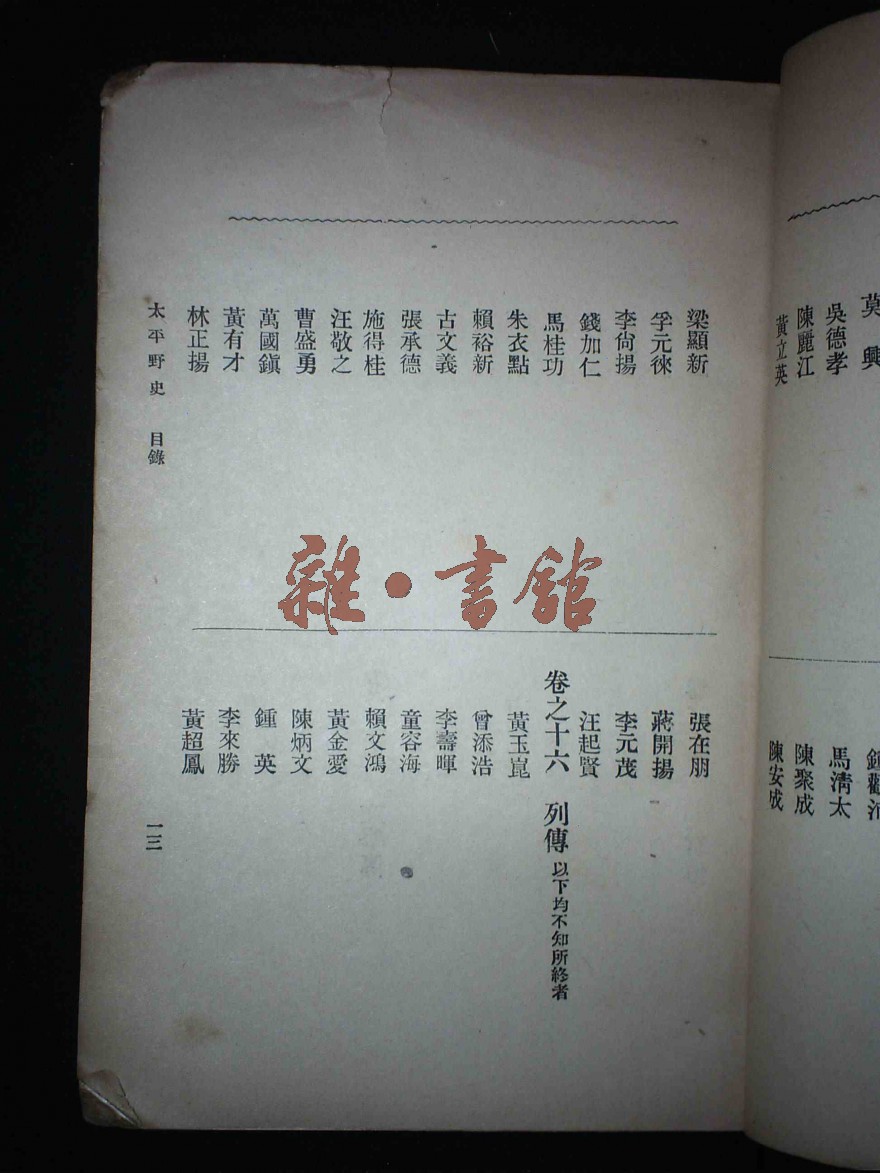 莫興
吳德孝
陳麗江
黃立英
馬淸太
陳聚成
陳安成
梁顯新
孚元徠
李尙揚
錢加仁
馬桂功
朱衣點
賴裕新
古文義
張承德
施得桂
汪敬之
曹盛勇
萬國鎭
黃有才
林正揚
張在朋
蔣開揚
李元茂
汪起賢
卷之十六 列傳 以下均不知所終者
黃玉崑
曾添浩
李壽暉
童容海
賴文鴻
黃金愛
陳炳文
鍾英
李來勝
黃超鳳
太平野史 目錄 一三
雜·書館